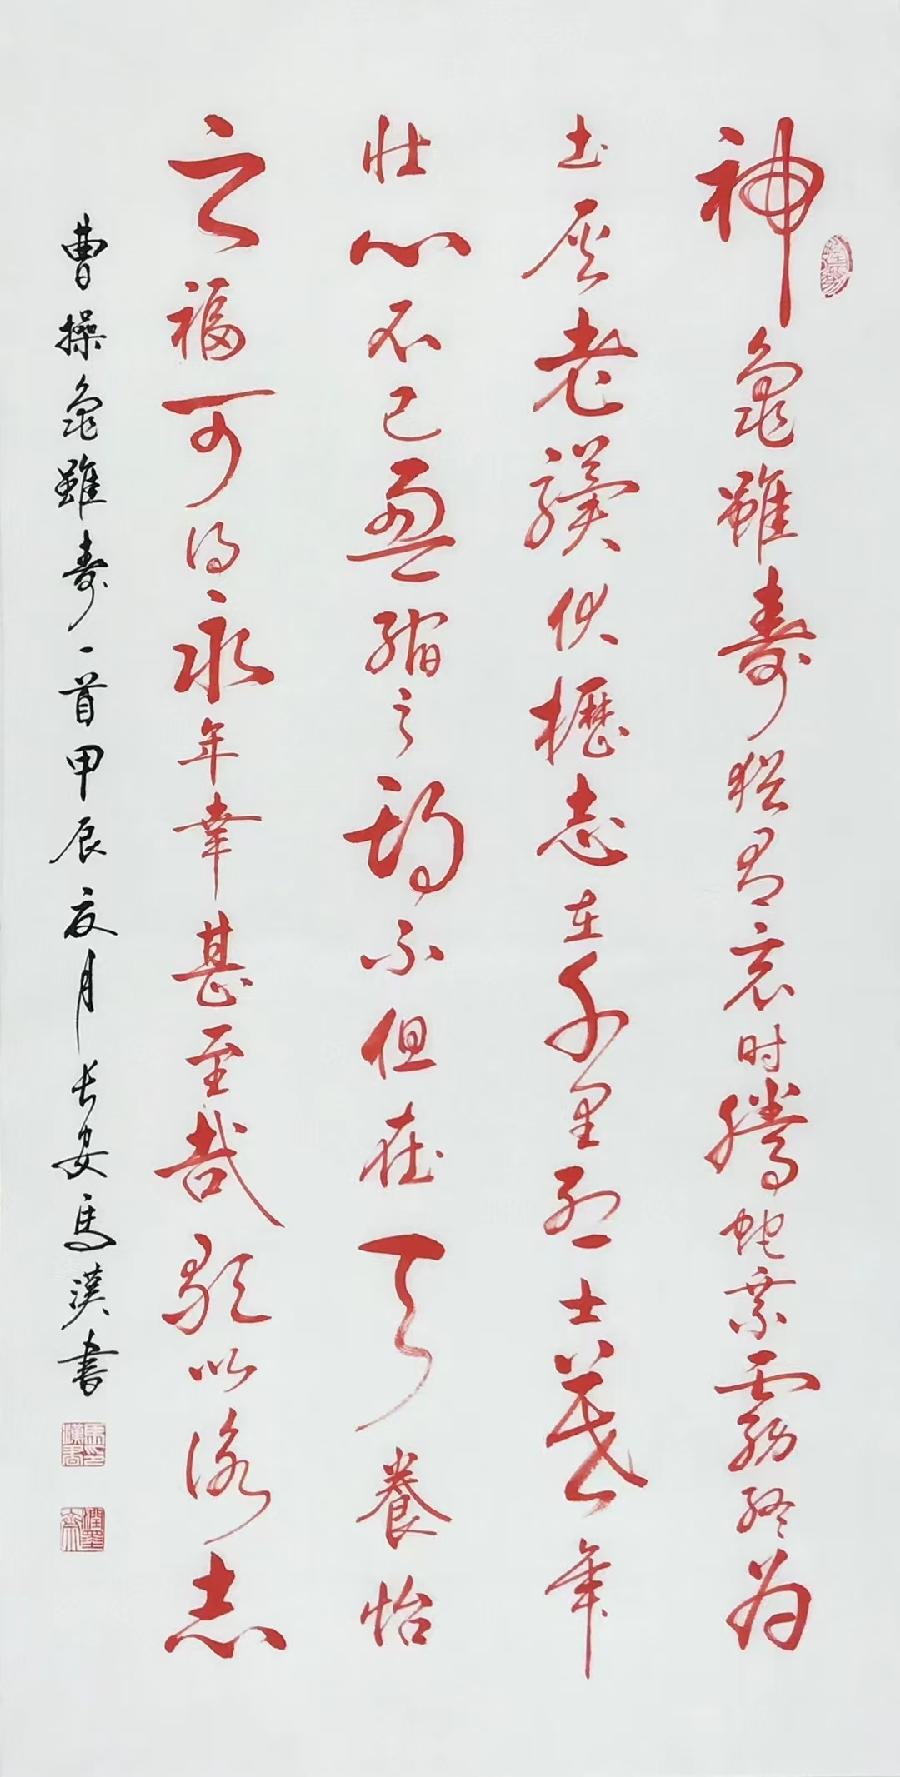 神龜雖壽猶有竟时騰蛇乗霧終为
土灰老驥伏櫪志在千里烈士暮年
壯心不已盈縮之期不但在天養怡
之福可得永年幸甚至哉歌以詠志
曹操龜雖壽一首甲辰夏月长安馬漢書